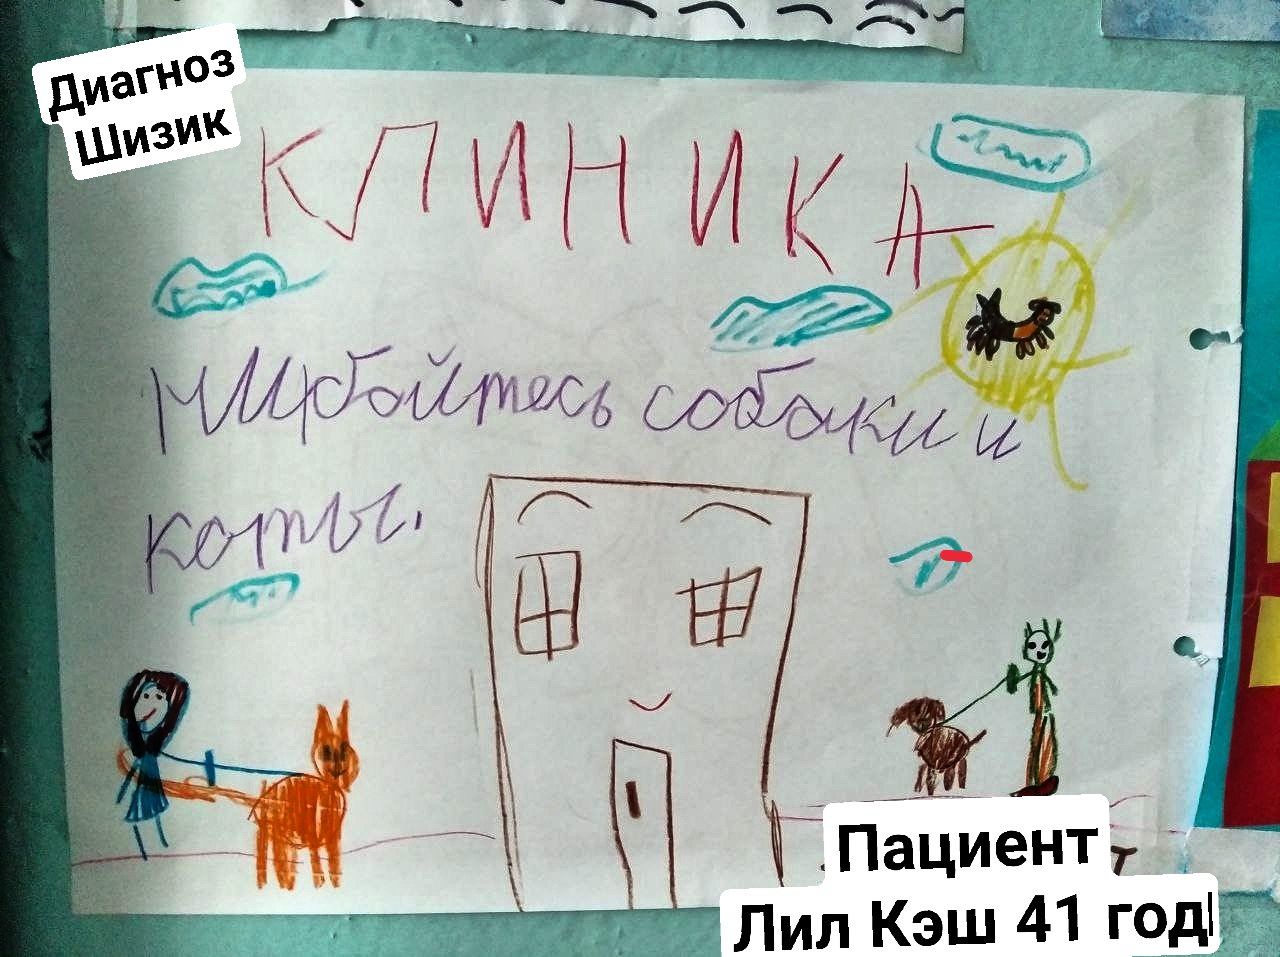 Диагноз
Шизик
КЛИНИКА
собаки и
коты.
Пациент
Лил Кэш 41 год